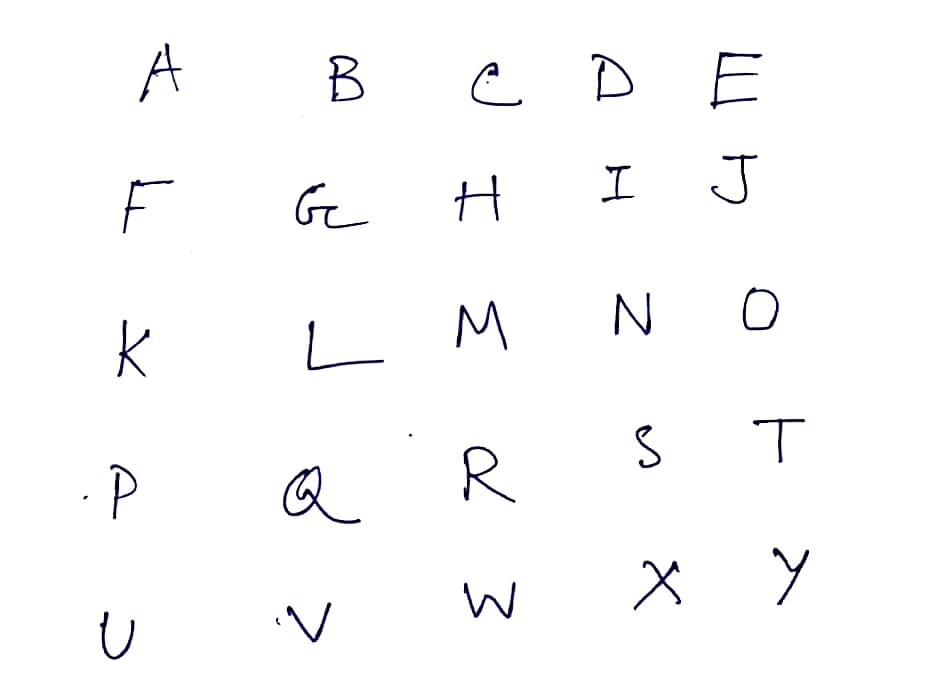 A B C D E
F G H I J
K L M N O
P Q R S T
U V W X Y